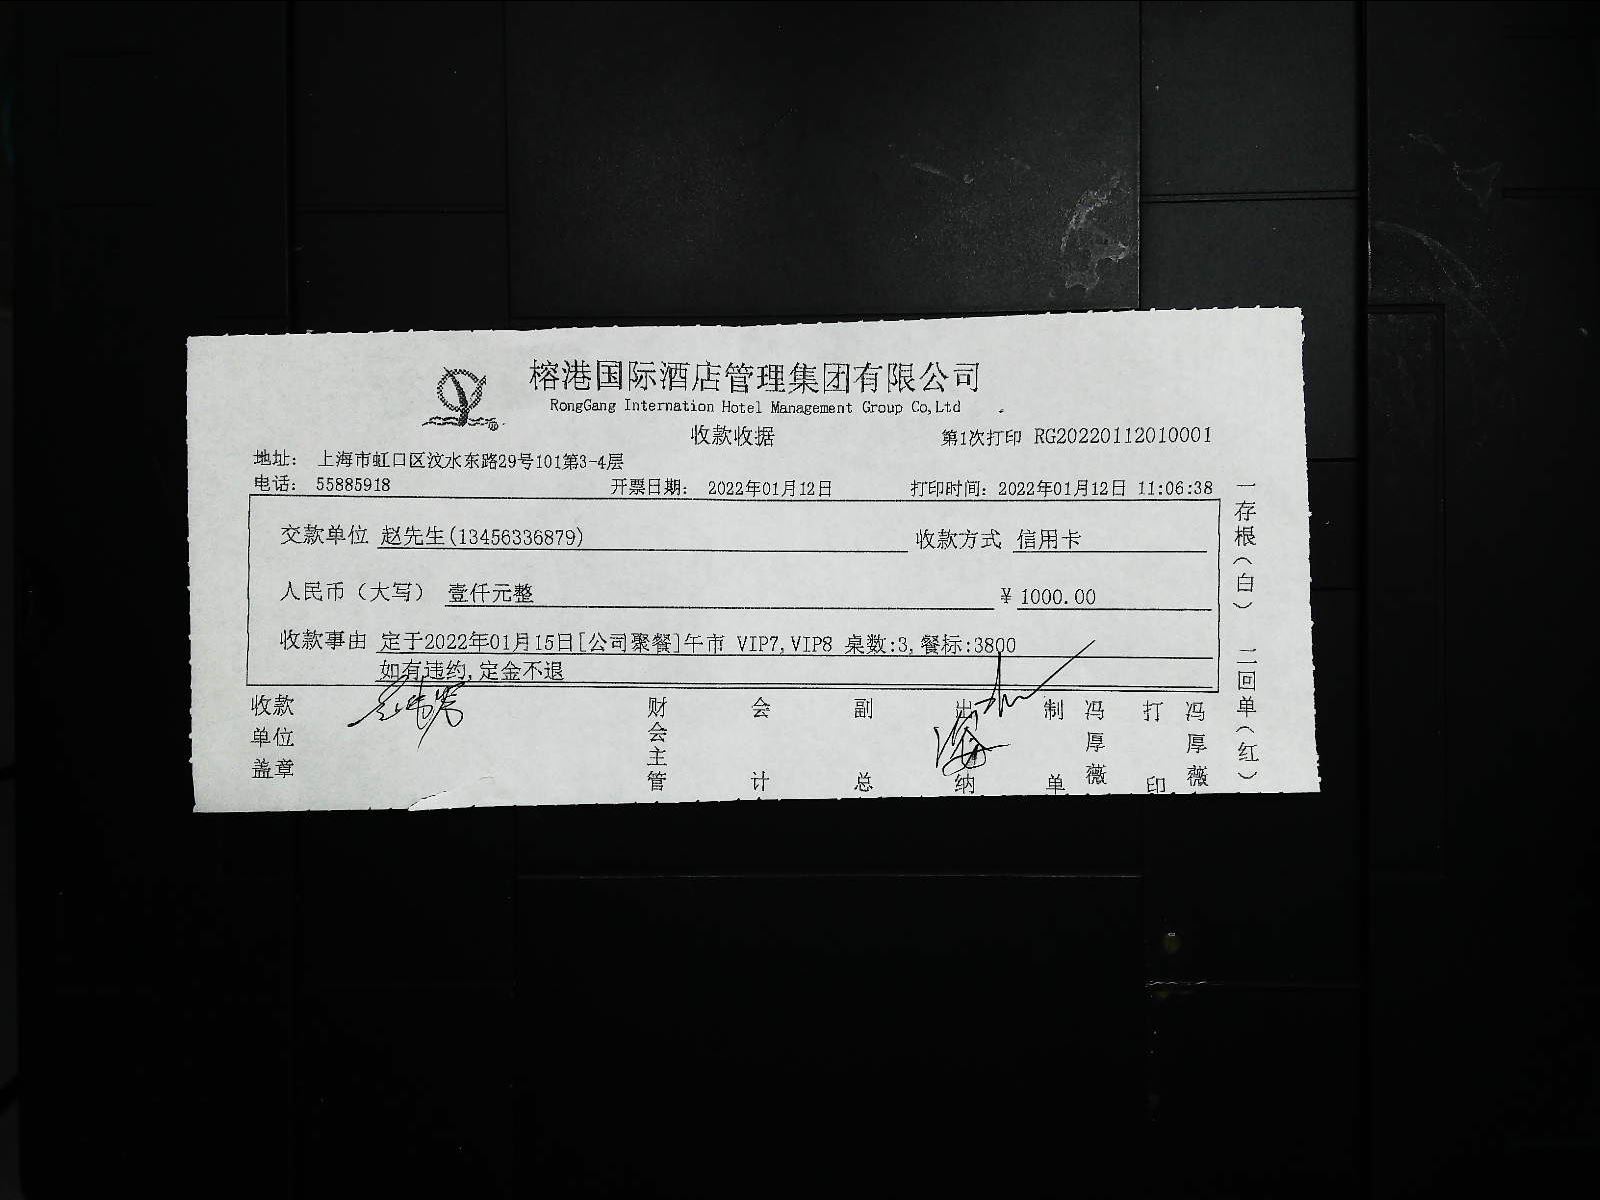 榕港国际酒店管理集团有限公司
RongGang Internation Hotel Management Group Co,Ltd
收款收据
第1次打印 RG20220112010001
地址： 上海市虹口区汶水东路29号101第3-4层
电话： 55885918 开票日期： 2022年01月12日 打印时间：2022年01月12日 11:06:38
交款单位 赵先生(13456336879) 收款方式 信用卡
人民币（大写） 壹仟元整 ¥ 1000.00
收款事由 定于2022年01月15日[公司聚餐]午市 VIP7,VIP8 桌数:3,餐标:3800
如有违约,定金不退
收款单位盖章
财会主管
会计
副总
出纳
制单
冯厚薇
打印
冯厚薇
一存根（白） 二回单（红）